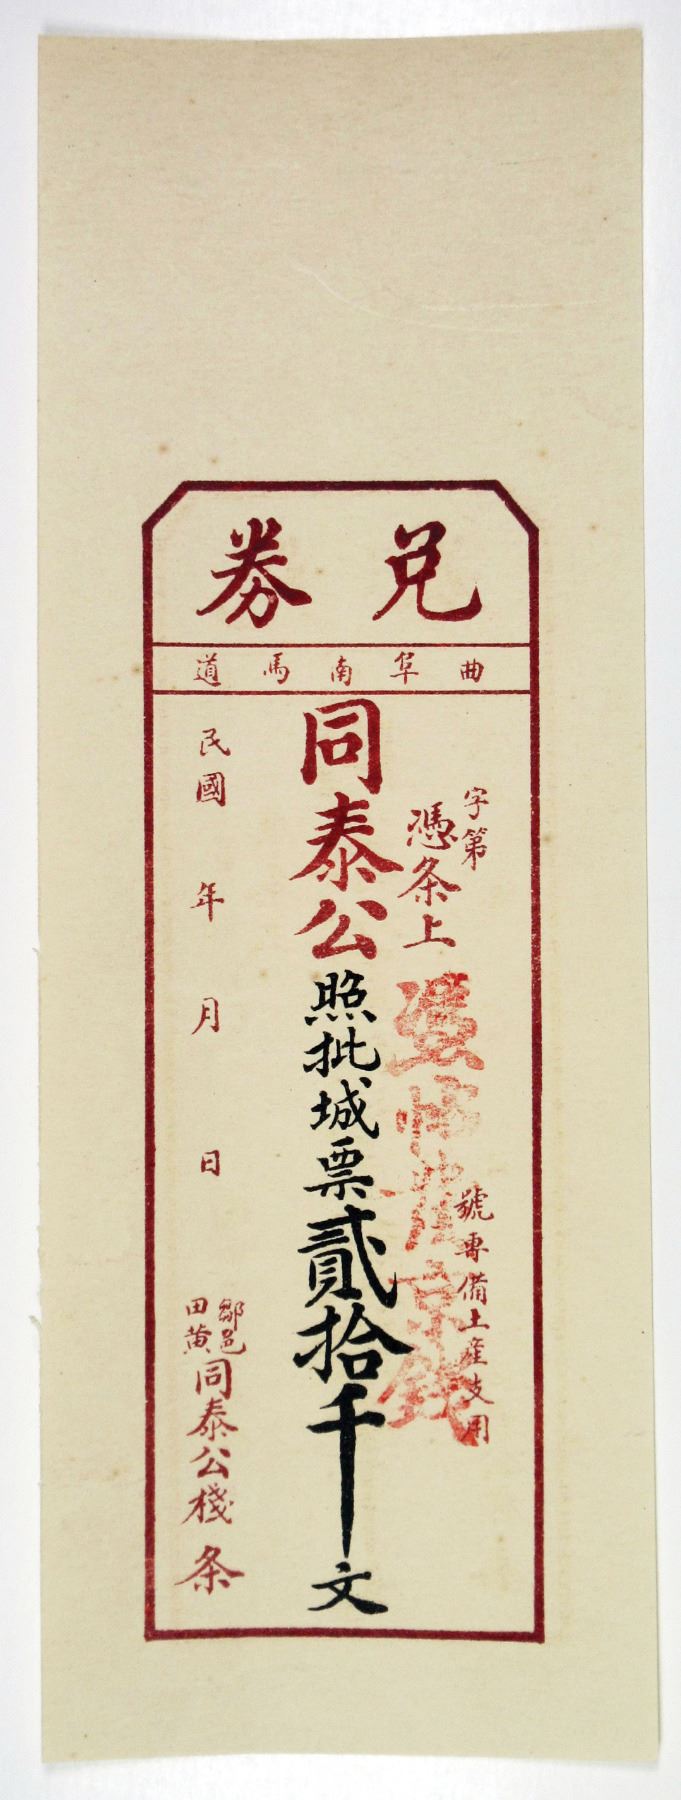 兌券
曲阜南馬道
字第 號專備土產支用
憑条上
憑帖發京錢
同泰公照批城票貳拾千文
民國 年 月 日
鄒邑
田黄
同泰公棧 条